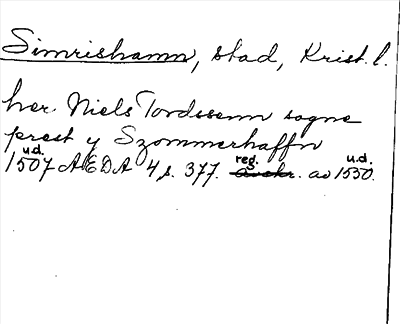 Simrishamn, stad, Krist. l.
her. Niels Tordssenn sogne
prest y Szommerhaffn
u.d. reg. u.d.
1507 AEDA 4 s. 377. avskr. av 1550.